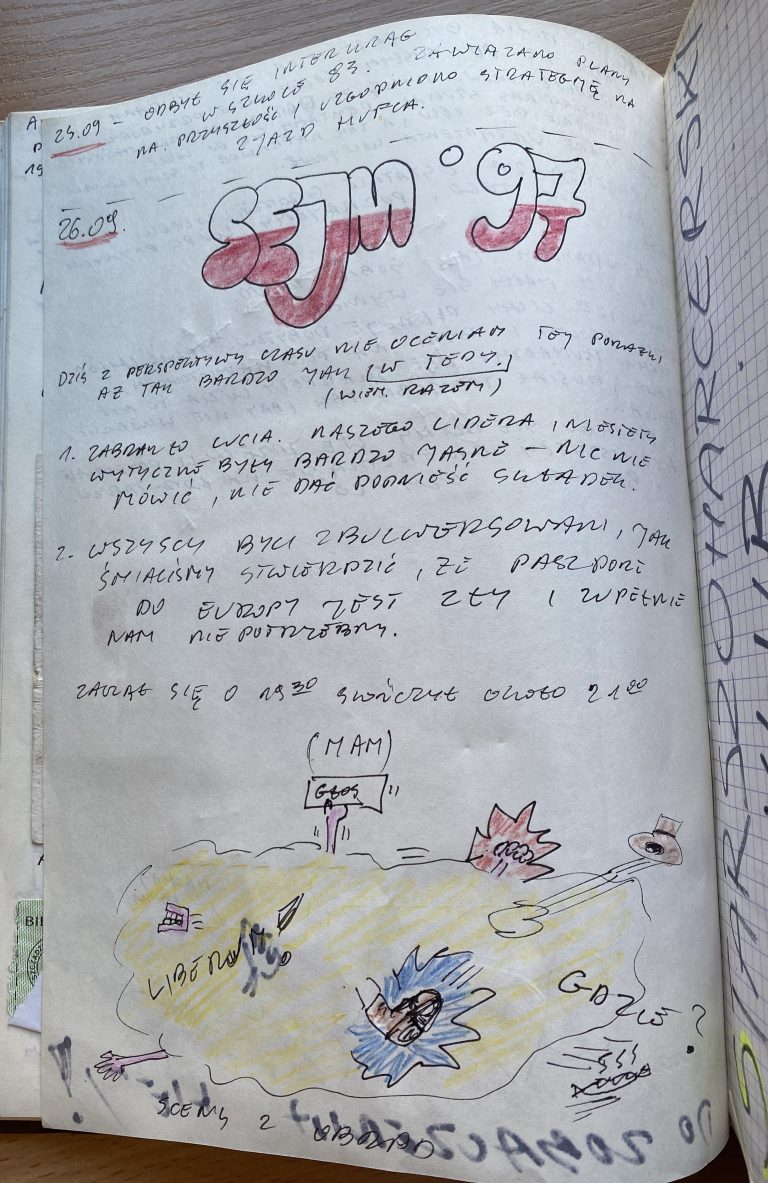 25.09 - ODBYŁ SIĘ INTERKRĄG
W SZKOLE 83. ZAWIĄZANO PLANY
NA PRZYSZŁOŚĆ I UZGODNIONO STRATEGIĘ NA
ZJAZD HUFCA.
26.09.
SEJM '97
DZIŚ Z PERSPEKTYWY CZASU NIE OCENIAM TEJ PORAŻKI
AŻ TAK BARDZO JAK (W TEDY.)
(WIEM. RAZEM)
1. ZABRAKŁO NASZEGO LIDERA, NIESTETY
WYTYCZNE BYŁY BARDZO JASNE — NIC NIE
MÓWIĆ, NIE DAĆ PODNIEŚĆ SKŁADEK.
2. WSZYSCY BYLI ZBULWERSOWANI, JAK
ŚMIELIŚMY STWIERDZIĆ, ŻE PASZPORT
DO EUROPY JEST ZŁY I ZUPEŁNIE
NAM NIEPOTRZEBNY.
ZACZĄŁ SIĘ O 19 30 SKOŃCZYŁ OKOŁO 21 00
(MAM)
GŁOS
LIBERUM
GDZIE?
SCENY Z OBRAD
DO ZOBACZENIA
HARCERSKI
BI